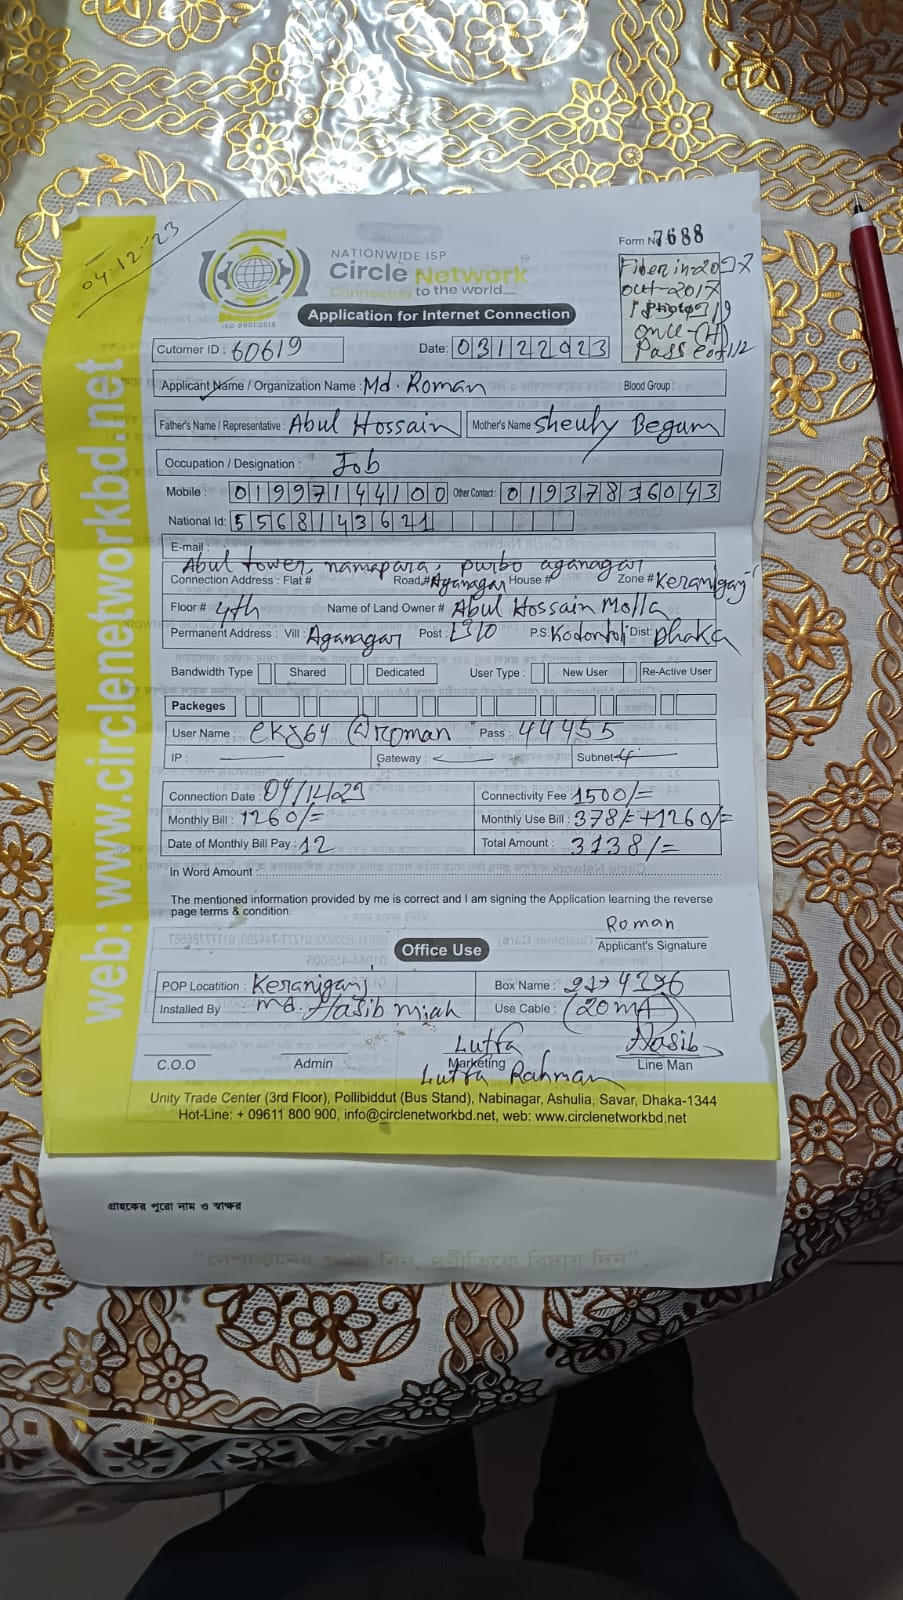 04.12.23
NATIONWIDE ISP
Circle Network
Connected to the world....
ISO 9001:2015
Application for Internet Connection
Form No 7688
Fiber in-2017
out-2017
Onu-(H)
Cutomer ID : 60619
Date: 03122023
Applicant Name / Organization Name : Md. Roman Blood Group :
Father's Name / Representative : Abul Hossain Mother's Name Sheuly Begum
Occupation / Designation : Job
Mobile : 01997144100 Other Contact : 01937836043
National Id: 5568143621
E-mail :
Abul tower, namapara, purbo aganagar
Connection Address : Flat # Road # Aganagar House # Zone # Keraniganj
Floor # 4th Name of Land Owner # Abul Hossain Molla
Permanent Address : Vill : Aganagar Post : 1310 P.S. Kodomtoli Dist: Dhaka
Bandwidth Type Shared Dedicated User Type : New User Re-Active User
Packeges
User Name : ekj64@roman Pass : 44455
IP : Gateway : Subnet
Connection Date : 04/12/023 Connectivity Fee 1500/=
Monthly Bill : 1260/= Monthly Use Bill : 378/=+1260/=
Date of Monthly Bill Pay : 12 Total Amount : 3138/=
In Word Amount :
The mentioned information provided by me is correct and I am signing the Application learning the reverse
page terms & condition.
Roman
Applicant's Signature
Office Use
POP Locatition : Keraniganj Box Name :
Installed By : Md. Hasib miah Use Cable : (20 m)
Lutfa Hasib
C.O.O Admin Marketing Line Man
Lutfa Rahman
Unity Trade Center (3rd Floor), Pollibiddut (Bus Stand), Nabinagar, Ashulia, Savar, Dhaka-1344
Hot-Line: + 09611 800 900, info@circlenetworkbd.net, web: www.circlenetworkbd.net
web: www.circlenetworkbd.net
গ্রাহকের পুরো নাম ও স্বাক্ষর